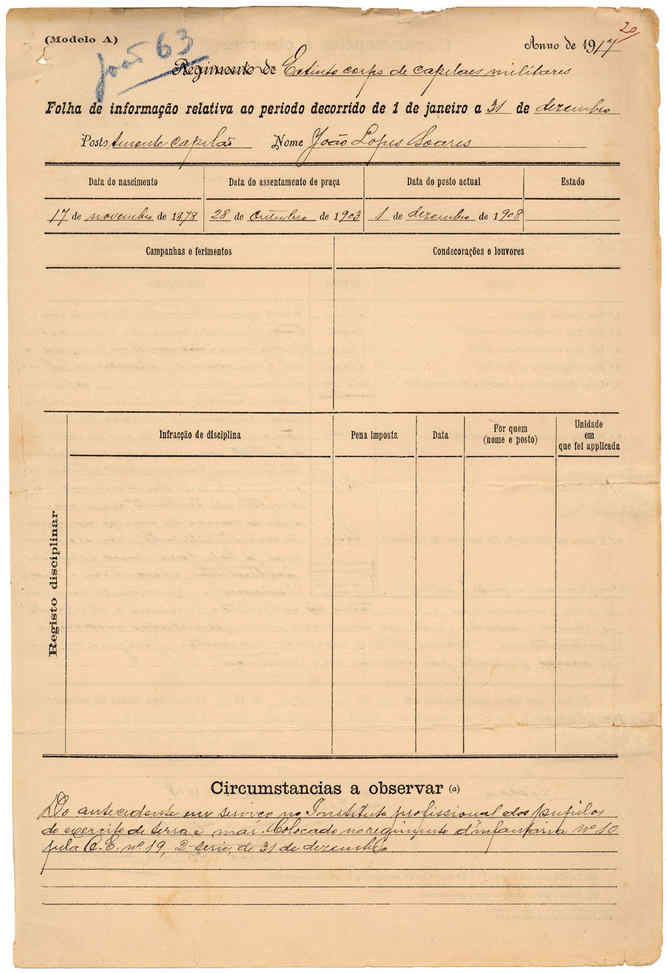 (Modelo A)
João 63
Anno de 1917
20
Regimento de Extinto corpo de capelães militares
Folha de informação relativa ao periodo decorrido de 1 de janeiro a 31 de dezembro
Posto tenente capelão Nome João Lopes Soares
Data do nascimento Data do assentamento de praça Data do posto actual Estado
17 de novembro de 1878 28 de Outubro de 1903 1 de dezembro de 1908
Campanhas e ferimentos Condecorações e louvores
Registo disciplinar
Infracção de disciplina Pena imposta Data Por quem (nome e posto) Unidade em que foi applicada
Circumstancias a observar (a)
Do antecedente em serviço no Instituto profissional dos pupilos
do exercito de terra e mar. Colocado no regimento d'infantaria nº 10
pela O.E. nº 19, 2ª serie, de 31 de dezembro